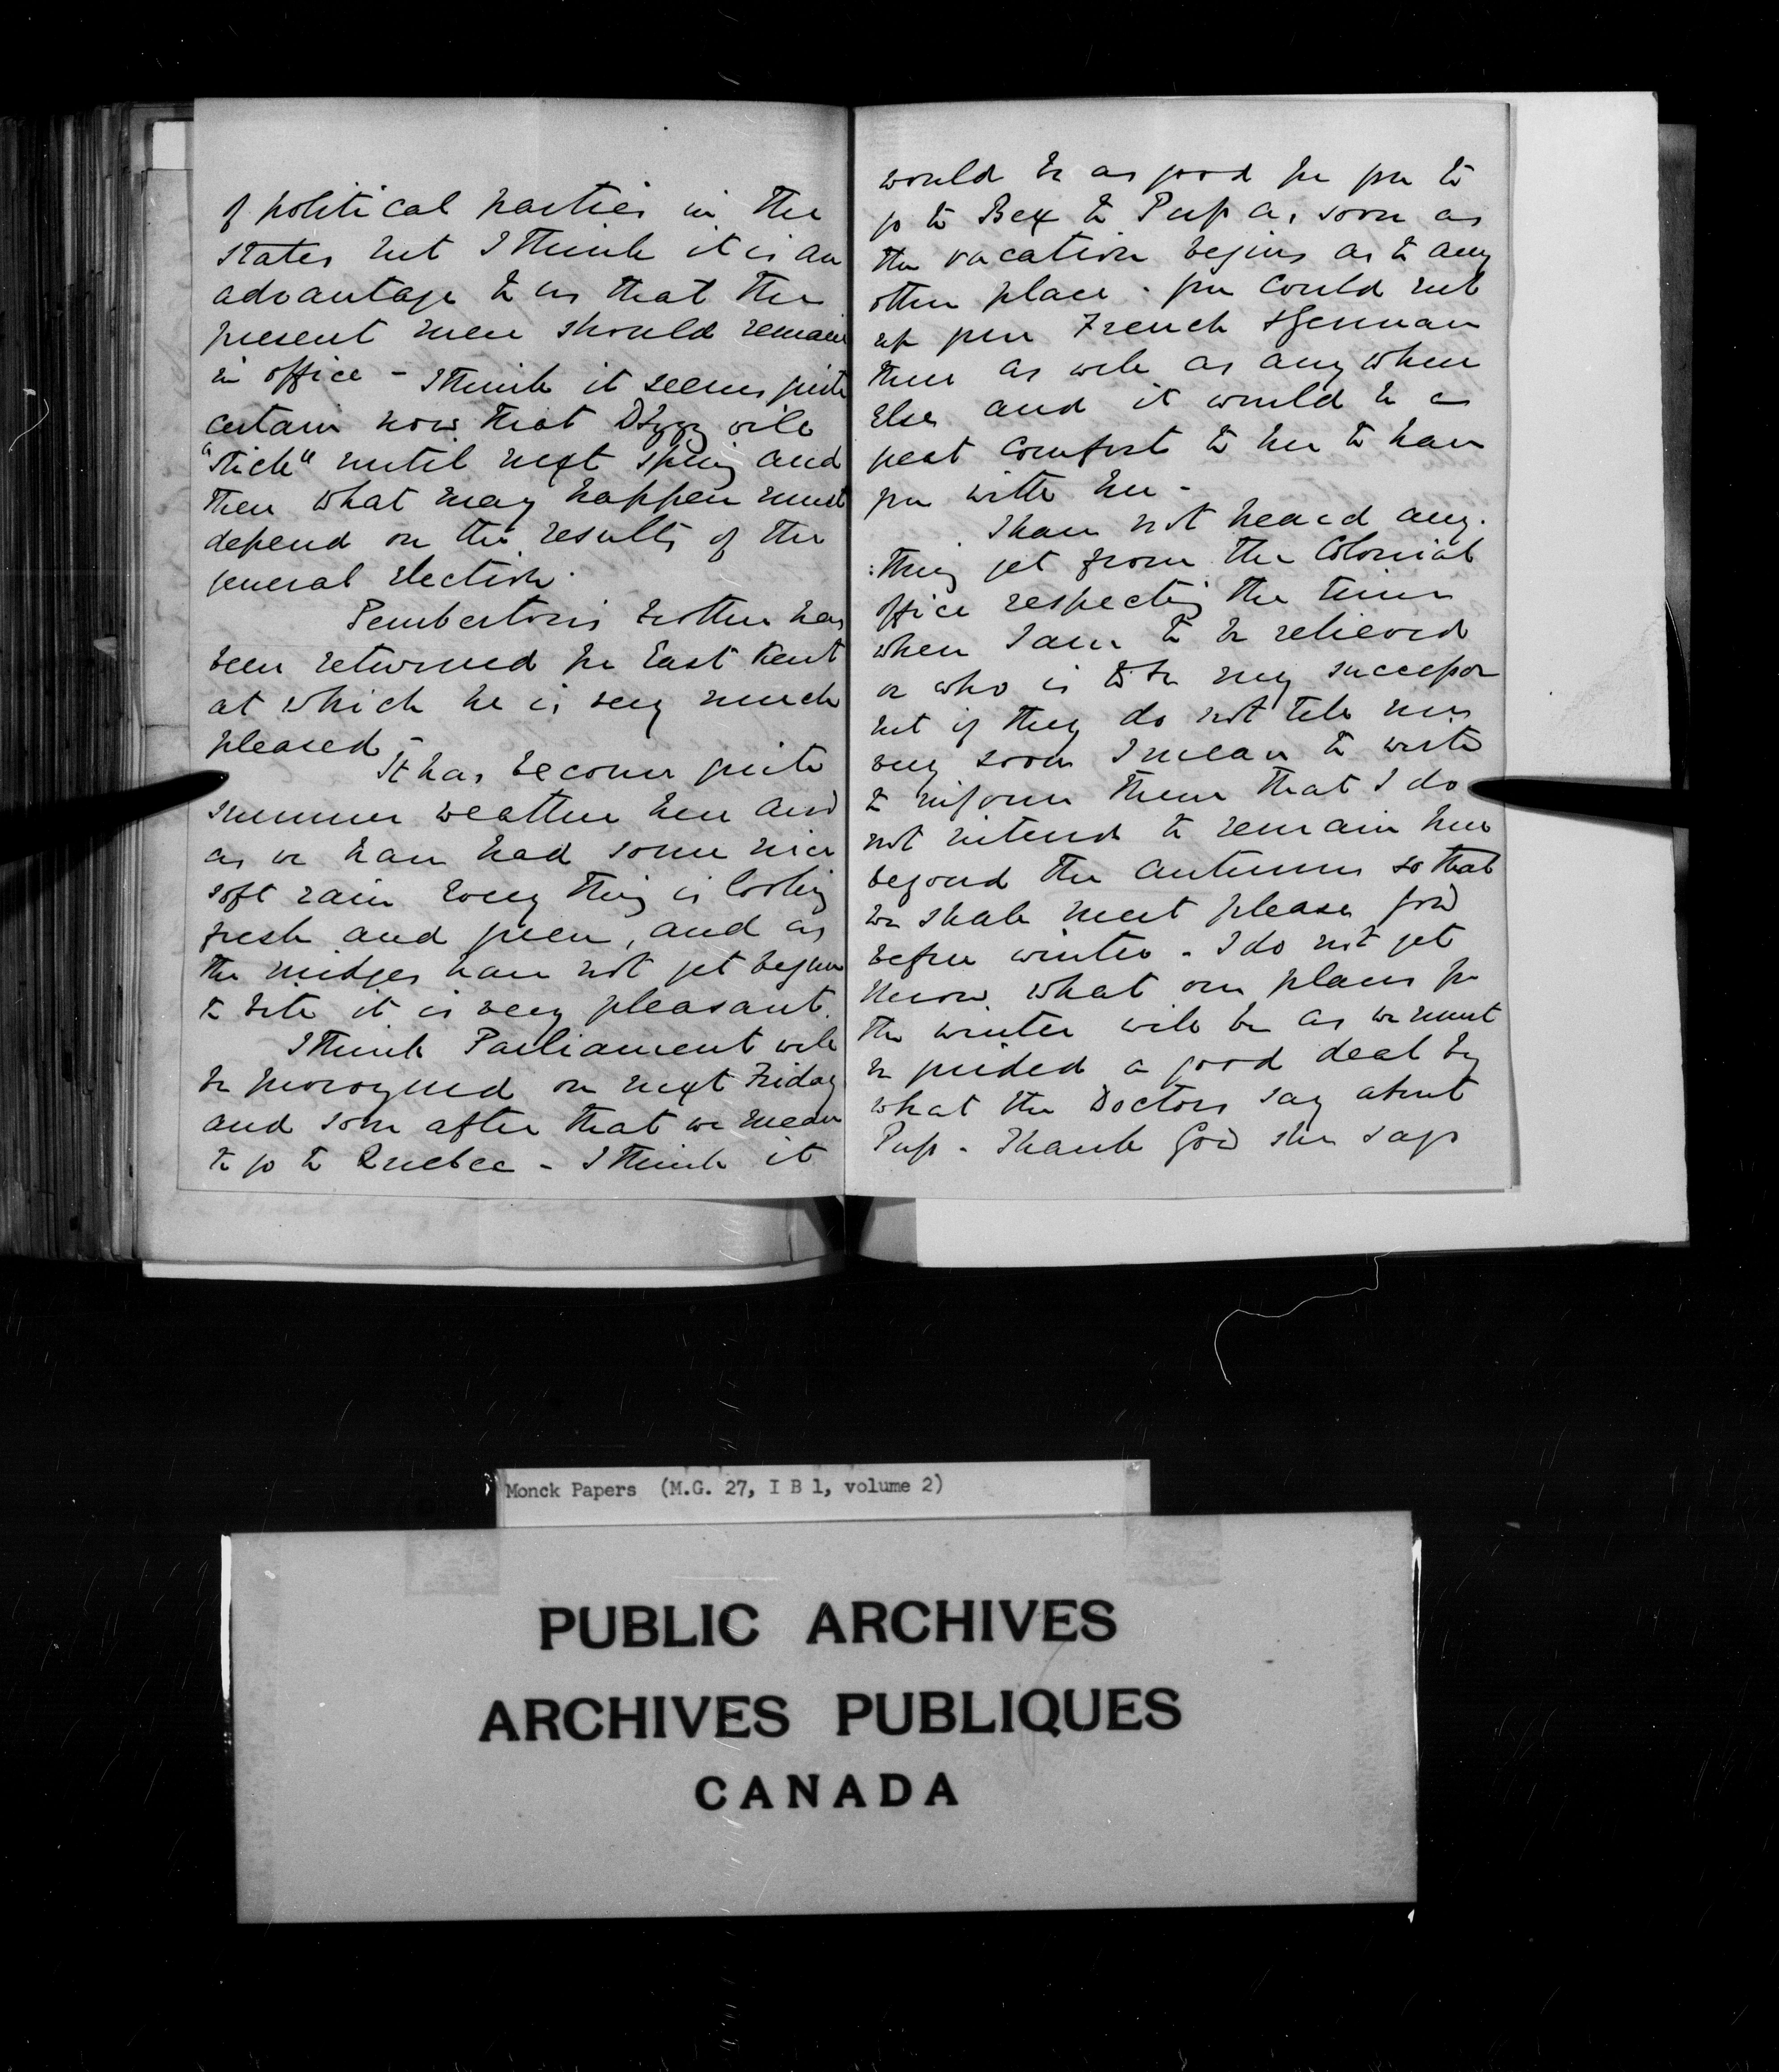 of political parties in the
States but I think it is an
advantage to us that the
present men should remain
in office - I think it seems quite
certain now that Dizzy will
"stick" until next spring and
then what may happen must
depend on the results of the
general election.
Pemberton's brother has
been returned for East Kent
at which he is very much
pleased -
It has become quite
summer weather here and
as we have had some nice
soft rain every thing is looking
fresh and green, and as
the midges have not yet begun
to bite it is very pleasant.
I think Parliament will
be prorogued on next Friday
and soon after that we mean
to go to Quebec - I think it
would be as good for you to
go to Bex to Pup as soon as
the vacation begins as to any
other place. you could rub
up your French & German
there as well as any where
else and it would be a
great comfort to her to have
you with her -
I have not heard any
:thing yet from the Colonial
Office respecting the time
when I am to be relieved
or who is to be my successor
but if they do not tell me
very soon I mean to write
to inform them that I do
not intend to remain here
beyond the autumn so that
we shall meet please God
before winter - I do not yet
know what our plans for
the winter will be as we must
be guided a good deal by
what the Doctors say about
Pup - Thank God she says
Monck Papers (M.G. 27, I B 1, volume 2)
PUBLIC ARCHIVES
ARCHIVES PUBLIQUES
CANADA